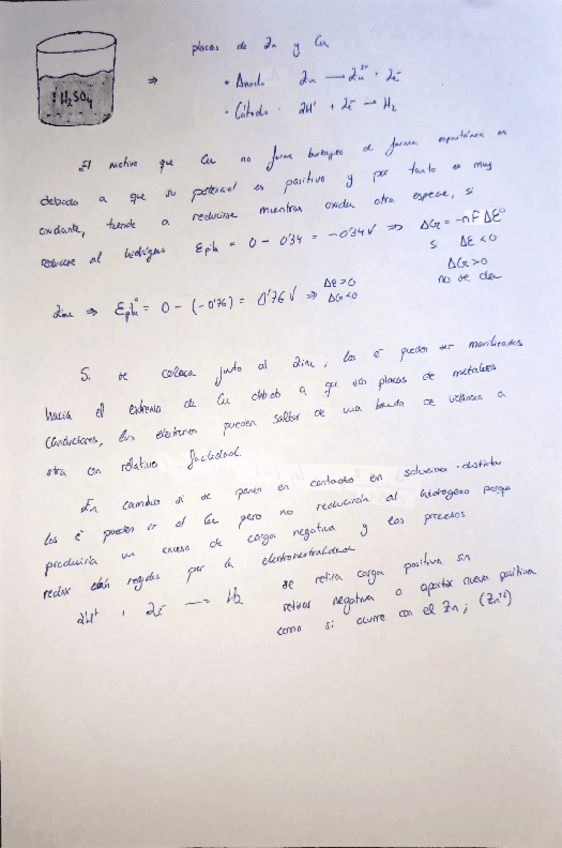 placas de Zn y Cu
H₂SO₄
⇒ • Anodo Zn → Zn²⁺ + 2e⁻
• Cátodo 2H⁺ + 2e⁻ → H₂
El motivo que Cu no forme burbujas de forma espontánea es
debido a que su potencial es positivo y por tanto es muy
oxidante, tiende a reducirse mientras oxida otra especie, si
reduce al hidrógeno Epila = 0 - 0'34 = -0'34 V ⇒ ΔG = -nFΔE°
si ΔE < 0
ΔG > 0
no se da
Zinc ⇒ Epila° = 0 - (-0'76) = 0'76 V ⇒ ΔE > 0
ΔG < 0
Si se coloca junto al Zinc, los e⁻ pueden ser movilizados
hacia el extremo de Cu debido a que son placas de metales
conductores, los electrones pueden saltar de una banda de valencia a
otra con relativa facilidad.
En cambio si se ponen en contacto en soluciones distintas
los e⁻ pueden ir al Cu pero no reducirán al hidrógeno porque
produciría un exceso de carga negativa y los procesos
redox están regidos por la electroneutralidad
2H⁺ + 2e⁻ → H₂ se retira carga positiva sin
retirar negativa o aportar nueva positiva
como si ocurre con el Zn; (Zn²⁺)